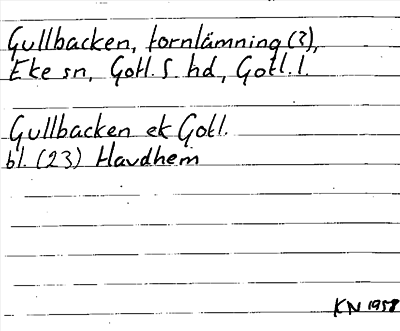 Gullbacken, fornlämning (?),
Eke sn, Gotl. S. hd, Gotl. l.
Gullbacken ek Gotl.
bl. (23) Havdhem
KN 1958